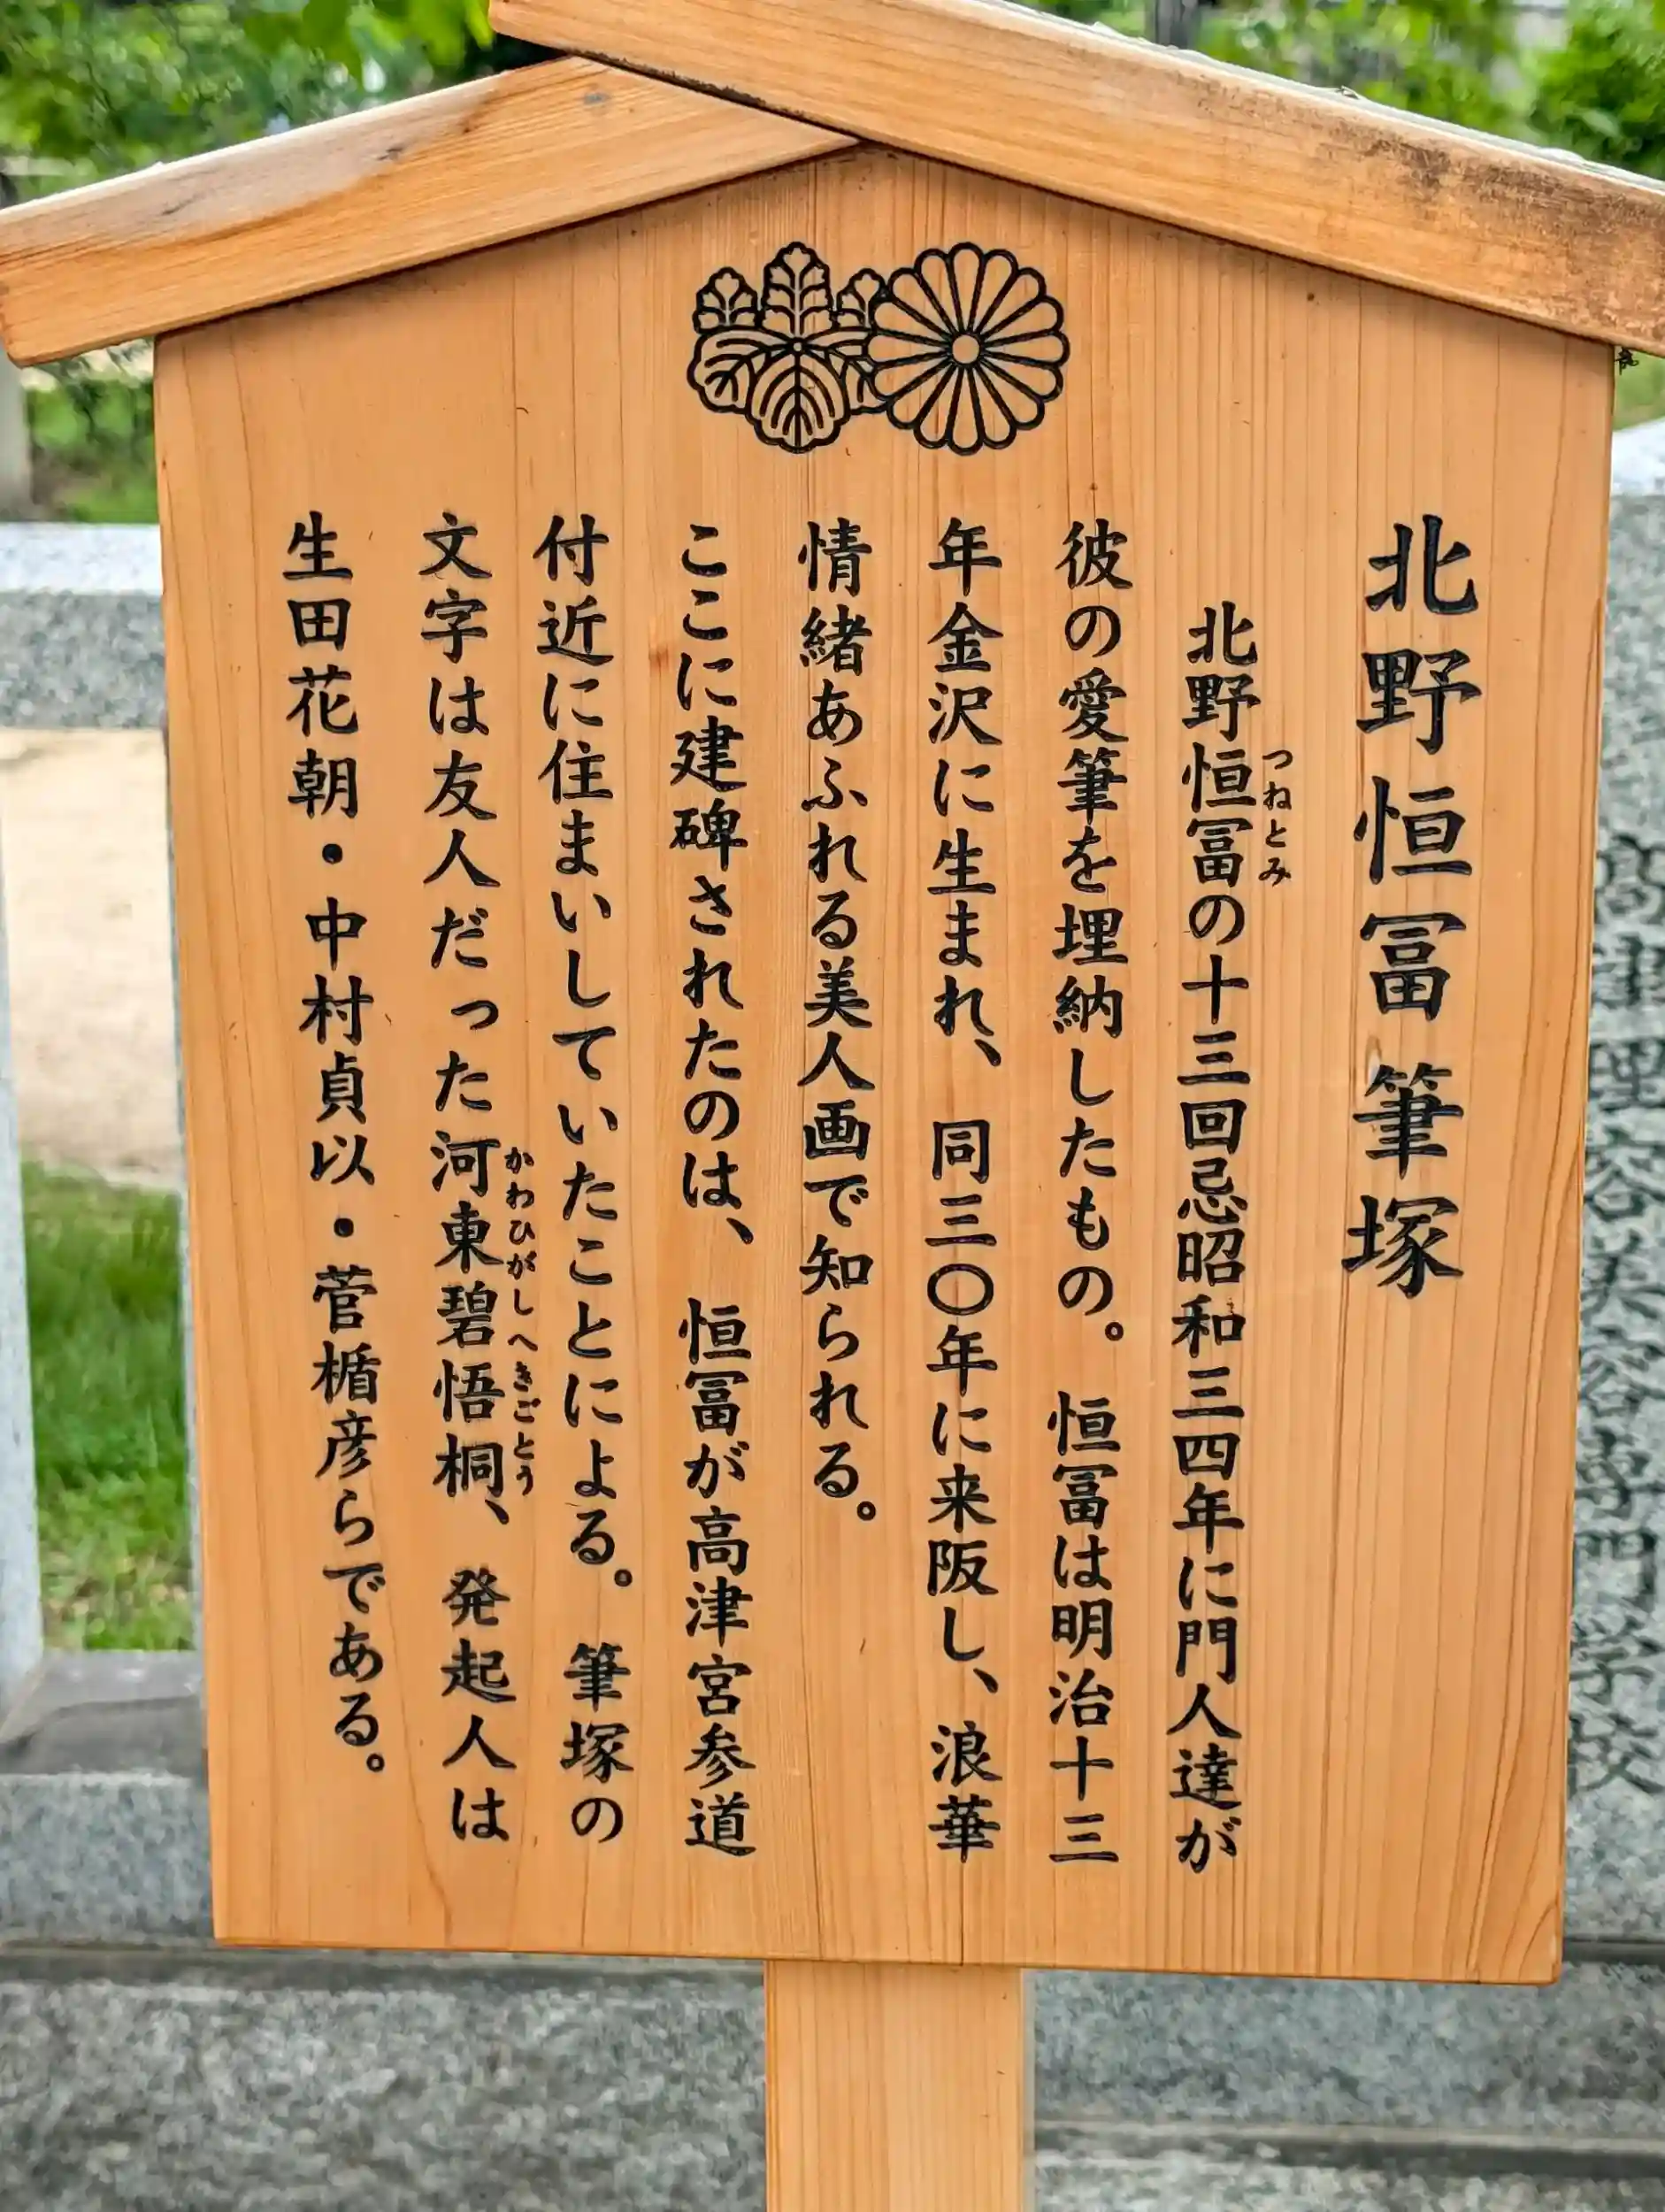 北野恒冨筆塚
北野恒冨の十三回忌昭和三四年に門人達が
つねとみ
彼の愛筆を埋納したもの。恒冨は明治十三
年金沢に生まれ、同三〇年に来阪し、浪華
情緒あふれる美人画で知られる。
ここに建碑されたのは、恒冨が高津宮参道
付近に住まいしていたことによる。筆塚の
文字は友人だった河東碧悟桐、発起人は
かわひがしへきごとう
生田花朝・中村貞以・菅楯彦らである。